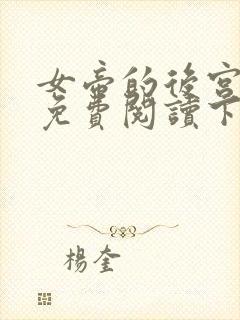 女帝的後宮
免費閱讀下
楊奎